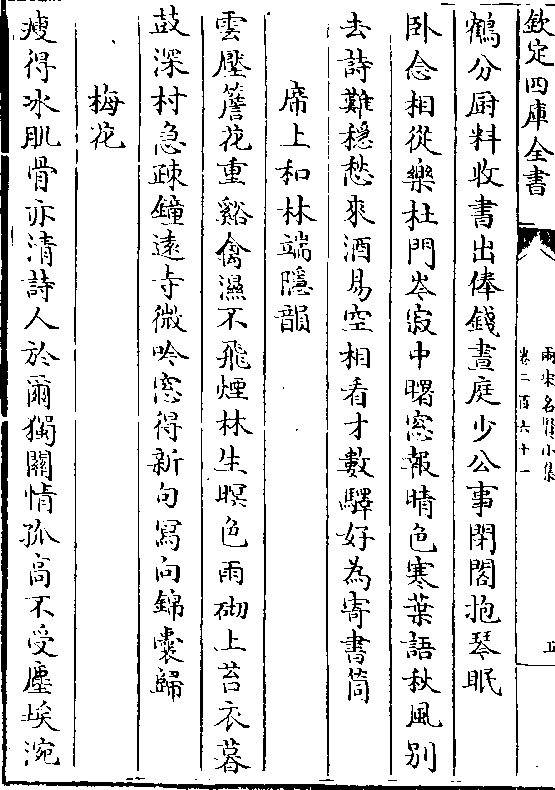 欽定四庫全書
兩宋名賢小集
卷二百六十一
五
鶴分厨料收書出俸錢晝庭少公事閉閤抱琴眠
卧念相從樂杜門岑寂中曙窓報晴色寒葉語秋風别
去詩難穏愁來酒易空相看才數驛好為寄書筒
席上和林端隱韻
雲壓簷花重谿禽濕不飛煙林生暝色雨砌上苔衣暮
鼓深村急疎鐘逺寺微吟窓得新句寫向錦囊歸
梅花
瘦得冰肌骨亦清詩人於爾獨關情孤高不受塵埃涴